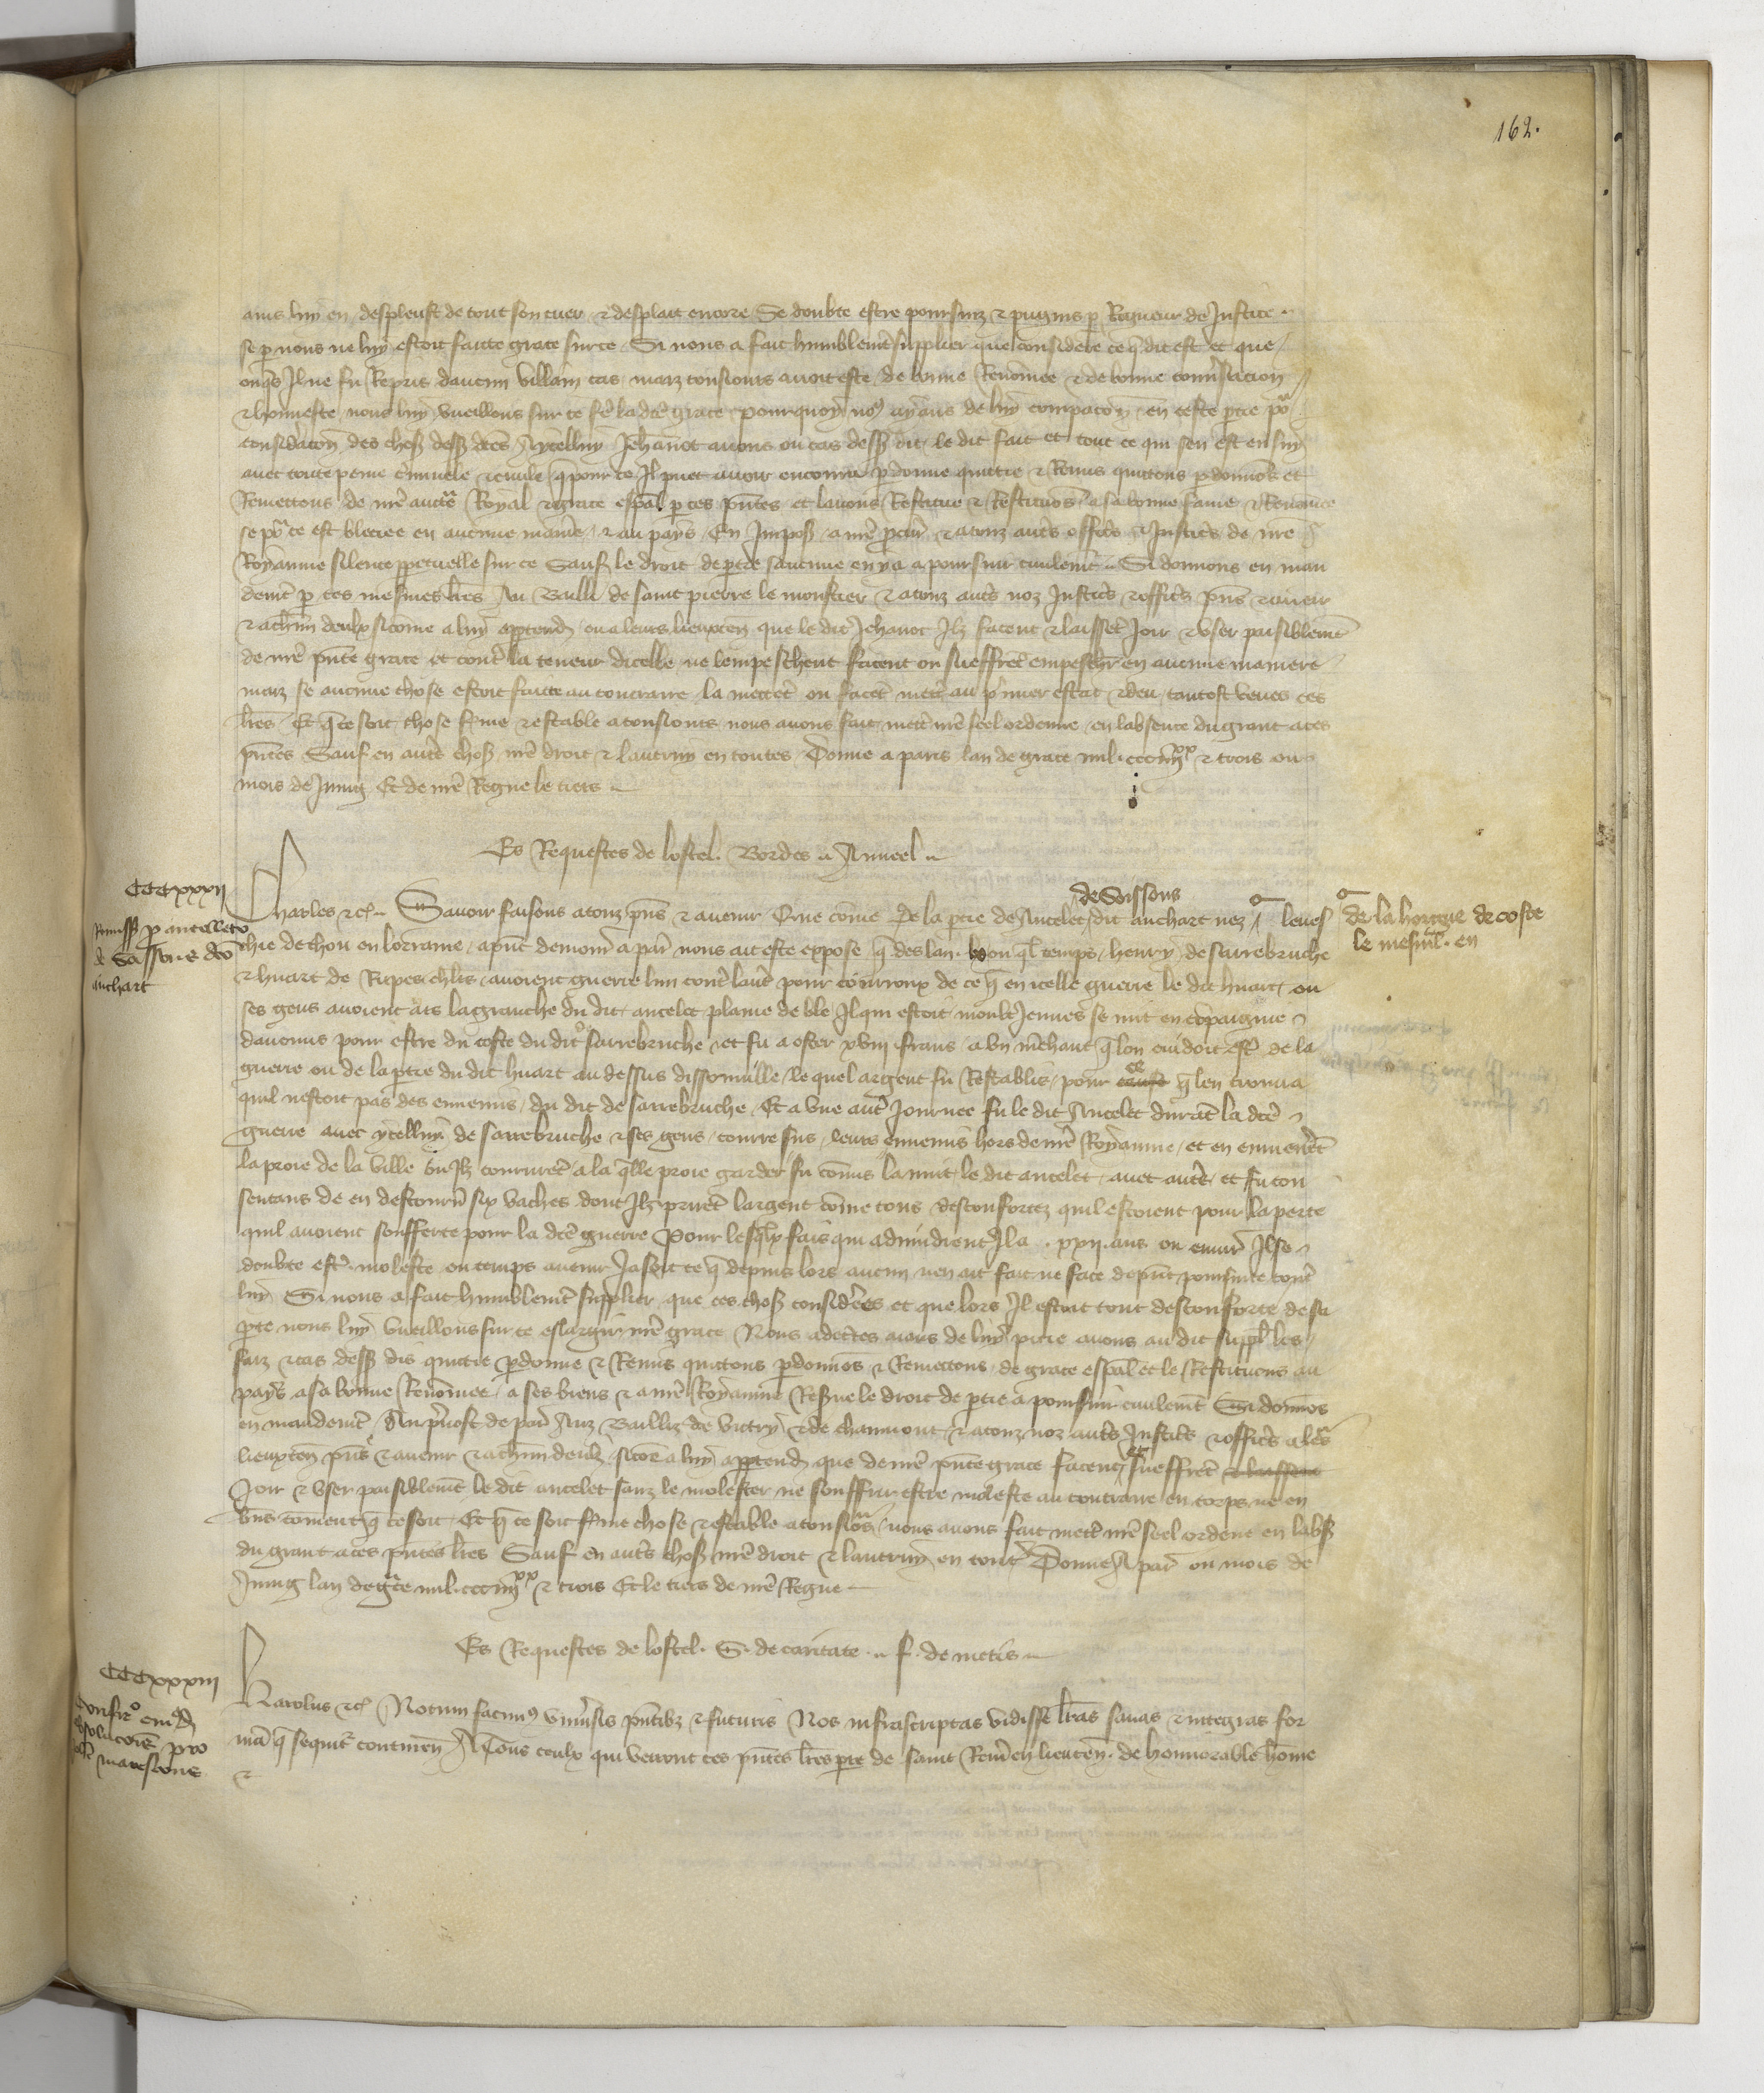 162.
ains luy en despleust de tout son cuer & desplait encore Se doubte estre poursuiz & pugnis p Rigueur de Justice
se p nous ne luy estoit faicte grace sur ce Si nous a fait humblemēt supplier que considere ce q̄ dit est et que
onq̄s Il ne fu Repris daucun villain cas maiz tousiours auoit este de bonne Renōmee & de bonne conuersacion
& honneste nous luy vueillons sur ce fē la dcē grace pourquoy noꝰ ayans de luy compacōn en ceste ptie po͛
consideracōn des choß desß dcēs Aycelluy Jehānot auons ou cas desß dit le dit fait et tout ce qui sen est ensuy
auec toute peine c̄minele & ciuile q̄ pour ce Il puet auoir encouru pdonne quictie & Remis quictons pdonnōs et
Remettons de nrē auctē Royal & grace esp̄al p ces pn̄tes et lauons Restitue & Restituōs a sa bonne fame & Renōmee
se po͛ ce est bleciee en aucune maniē & au pays En Imposß a nrē pcur̄ & a touz autrēs offic̄s & Justic̄s de nrē
Royaume silence ppetuelle sur ce Sauf le droit de ptie saucune en y a a poursuir ciuilemt̄ Si donnons en man
demēt p ces mesmes lrēs Au Bailli de saint pierre le monstier & a touz autrēs noz Justic̄s & offic̄s pn̄s & auenir
& a chūn deulx sicōme a luy apptendra ou a leurs lieuxten̄ que le dit Jehanot Ilz facent & laissēt Joir & vser paisiblemt̄
de nrē pn̄te grace et contrē la teneur dicelle ne lempeschent facent ou sueffrēt empeschier en aucune maniere
maiz se aucune chose estoit faicte au contraire la mettēt ou facēt mettrē au p̄mier estat & deu tantost veues ces
lrēs Et q̄ ce soit chose ferme & estable a tousiours nous auons fait mettrē nrē seel ordenne en labsence du grant a ces
pn̄tes Sauf en autrēs choß nrē droit & lautruy en toutes Donne a paris lan de grace mil ccc iiij xx & trois ou
mois de Juing Et de nrē Regne le tiers
Es Requestes de lostel. Bordes Anueel
CCCxxxij
Remissß p ancelleto
de Saxssons dco
anchart
de Soissons
Charles &c Sauoir faisons a touz pn̄s & auenir Que cōme de la ptie de Ancelet dit anchart nez leues
de la horgne de coste
le mesnil. en
chie de thou en lorraine a pn̄t demour̄ a par̄ nous ait este expose q̄ des lan ou q̄l temps henry de sarrebruche
& huart de Rupes ch̄lrs auoient guerre lun contrē lautrē pour courroux de ce q̄ en icelle guerre le dit huart ou
ses gens auoient ars la granche du dit ancelet plaine de ble Il qui estoit moult Jeunes se mit en cōpaignie
daucuns pour estre du coste du dit sarrebruche et fu a oster xviij frans a vn mēchant q̄ lon cuidoit estrē de la
guerre ou de la ptie du dit huart au dessus dissonuille le quel argent fu Restablis pour ce q̄ len trouua
quil nestoit pas des ennemis du dit de sarrebruche Et a vne autrē Journee fu le dit Ancelet durāt la dcē
guerre auec ycelluy de sarrebruche & ses gens courre sus leurs ennemis hors de nrē Royaume et en emmenerēt
la proie de la ville ou Ilz coururēt a la q̄lle proie garder fu cōmis la nuit le dit ancelet auec autrēs et fu con
sentans de en destournēr six vaches dont Ilz prirēt largent cōme touz desconfortez quil estoient pour la perte
quil auoient soufferte pour la dcē guerre Pour lesq̄lx fais qui aduindrent Il a . xxij. ans ou enuir̄ Il se
doubte estrē moleste ou temps auenir Jasoit ce q̄ depuis lors aucun nen ait fait ne face a pn̄t poursuite contrē
luy Si nous a fait humblemēt supplier que ces choß considerees et que lors Il estoit tout desconforte de sa
pte nous luy vueillons sur ce eslargir nrē grace Nous a dectes aians de luy pitie auons au dit suppl̄ les
faiz & cas desß dis quictie pdonne & Remis quictons pdonnōs & Remettons de grace esp̄al et le Restituons au
pays a sa bonne Renōmee a ses biens & a nrē Royaume Reßue le droit de ptie a poursuir ciuilemt̄ Si donnōs
en mandemt̄ Au p̄uost de par̄ Aux Bailliz de vitry & de chaumont & a touz noz autrēs Justic̄s & offic̄s a leūrs
lieuxten̄ pn̄s & auenir & a chūn deulx sicōe a luy apptendra que de nrē pn̄te grace facent et sueffrēt & laissent
Joir & vser paisiblemt̄ le dit ancelet sanz le molester ne souffrir estre moleste au contraire en corps ne en
bn̄s cōment q̄ ce soit Et q̄ ce soit ferme chose & estable a tousiōs nous auons fait mettrē nrē seel ordene en labß
du grant a ces pn̄tes lrēs Sauf en autrēs choß nrē droit & lautruy en tout͛ Donne A par̄ ou mois de
Juing lan de grāce mil ccc iiij xx & trois Et le tiers de nrē Regne
Es Requestes de lostel. G. de caritate. f. de metis
CCCxxxiij
Confirō cuiꝰd̄
absolucōis pro
Joh̄ marescone
Karolus &c Notum facimꝰ vniūsis pn̄tibꝫ & futuris Nos infrascriptas vidisse lrās sanas & integras for
mā q̄ sequit͛ contineñ A Tous ceulx qui verront ces pn̄tes lrēs pre de saint Remy en lieuten̄ de honnorable hōme
&